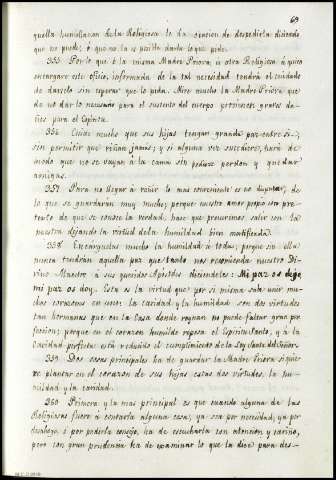 69
quella humillacion de la Religiosa le da ocasion de despedirla diciendo
que no puede; ó que no la es posible darla lo que pide.
355 Por lo que á la misma Madre Priora, ú otra Religiosa á quien
encargare este oficio, informada de la tal necesidad tendrá el cuidado
de darselo sin esperar que lo pida. Mire mucho la Madre Priora que
de no dar lo necesario para el sustento del cuerpo provienen graves da-
ños para el Espíritu.
356 Cuide mucho que sus hijas tengan grande paz entre sí,
sin permitir que riñan jamás; y si alguna vez sucediere, hará de
modo que no se vayan á la cama sin pedirse perdon y quedar
amigas.
357 Para no llegar á reñir lo mas conveniente es no disputar, de
lo que se guardarán muy mucho; porque nuestro amor propio con pre-
texto de que se conozca la verdad, hace que procuremos salir con la
nuestra dejando la virtud de la humildad bien mortificada.
358 Encárguelas mucho la humildad á todas; porque sin ella
nunca tendrán aquella paz que tanto nos recomienda nuestro Di-
vino Maestro á sus queridos Apóstoles diciendoles: Mi paz os dejo,
mi paz os doy. Esta es la virtud que por sí misma sabe unir mu-
chos corazones en uno: la caridad y la humildad son dos virtudes
tan hermanas que en la Casa donde reynan no puede faltar gran per-
feccion; porque en el corazon humilde reposa el Espíritu Santo, y á la
Caridad perfecta está reducido el cumplimiento de la Ley Santa del Señor.
359 Dos cosas principales ha de guardar la Madre Priora si quie-
re plantar en el corazon de sus hijas estas dos virtudes, la hu-
mildad y la caridad.
360 Primera y la mas principal es que cuando alguna de las
Religiosas fuere á contarla alguna cosa, ya sea por necesidad, ya por
desahogo, ó por pedirla consejo, ha de escucharla con atencion y cariño,
pero con gran prudencia ha de examinar lo que la dice para des-